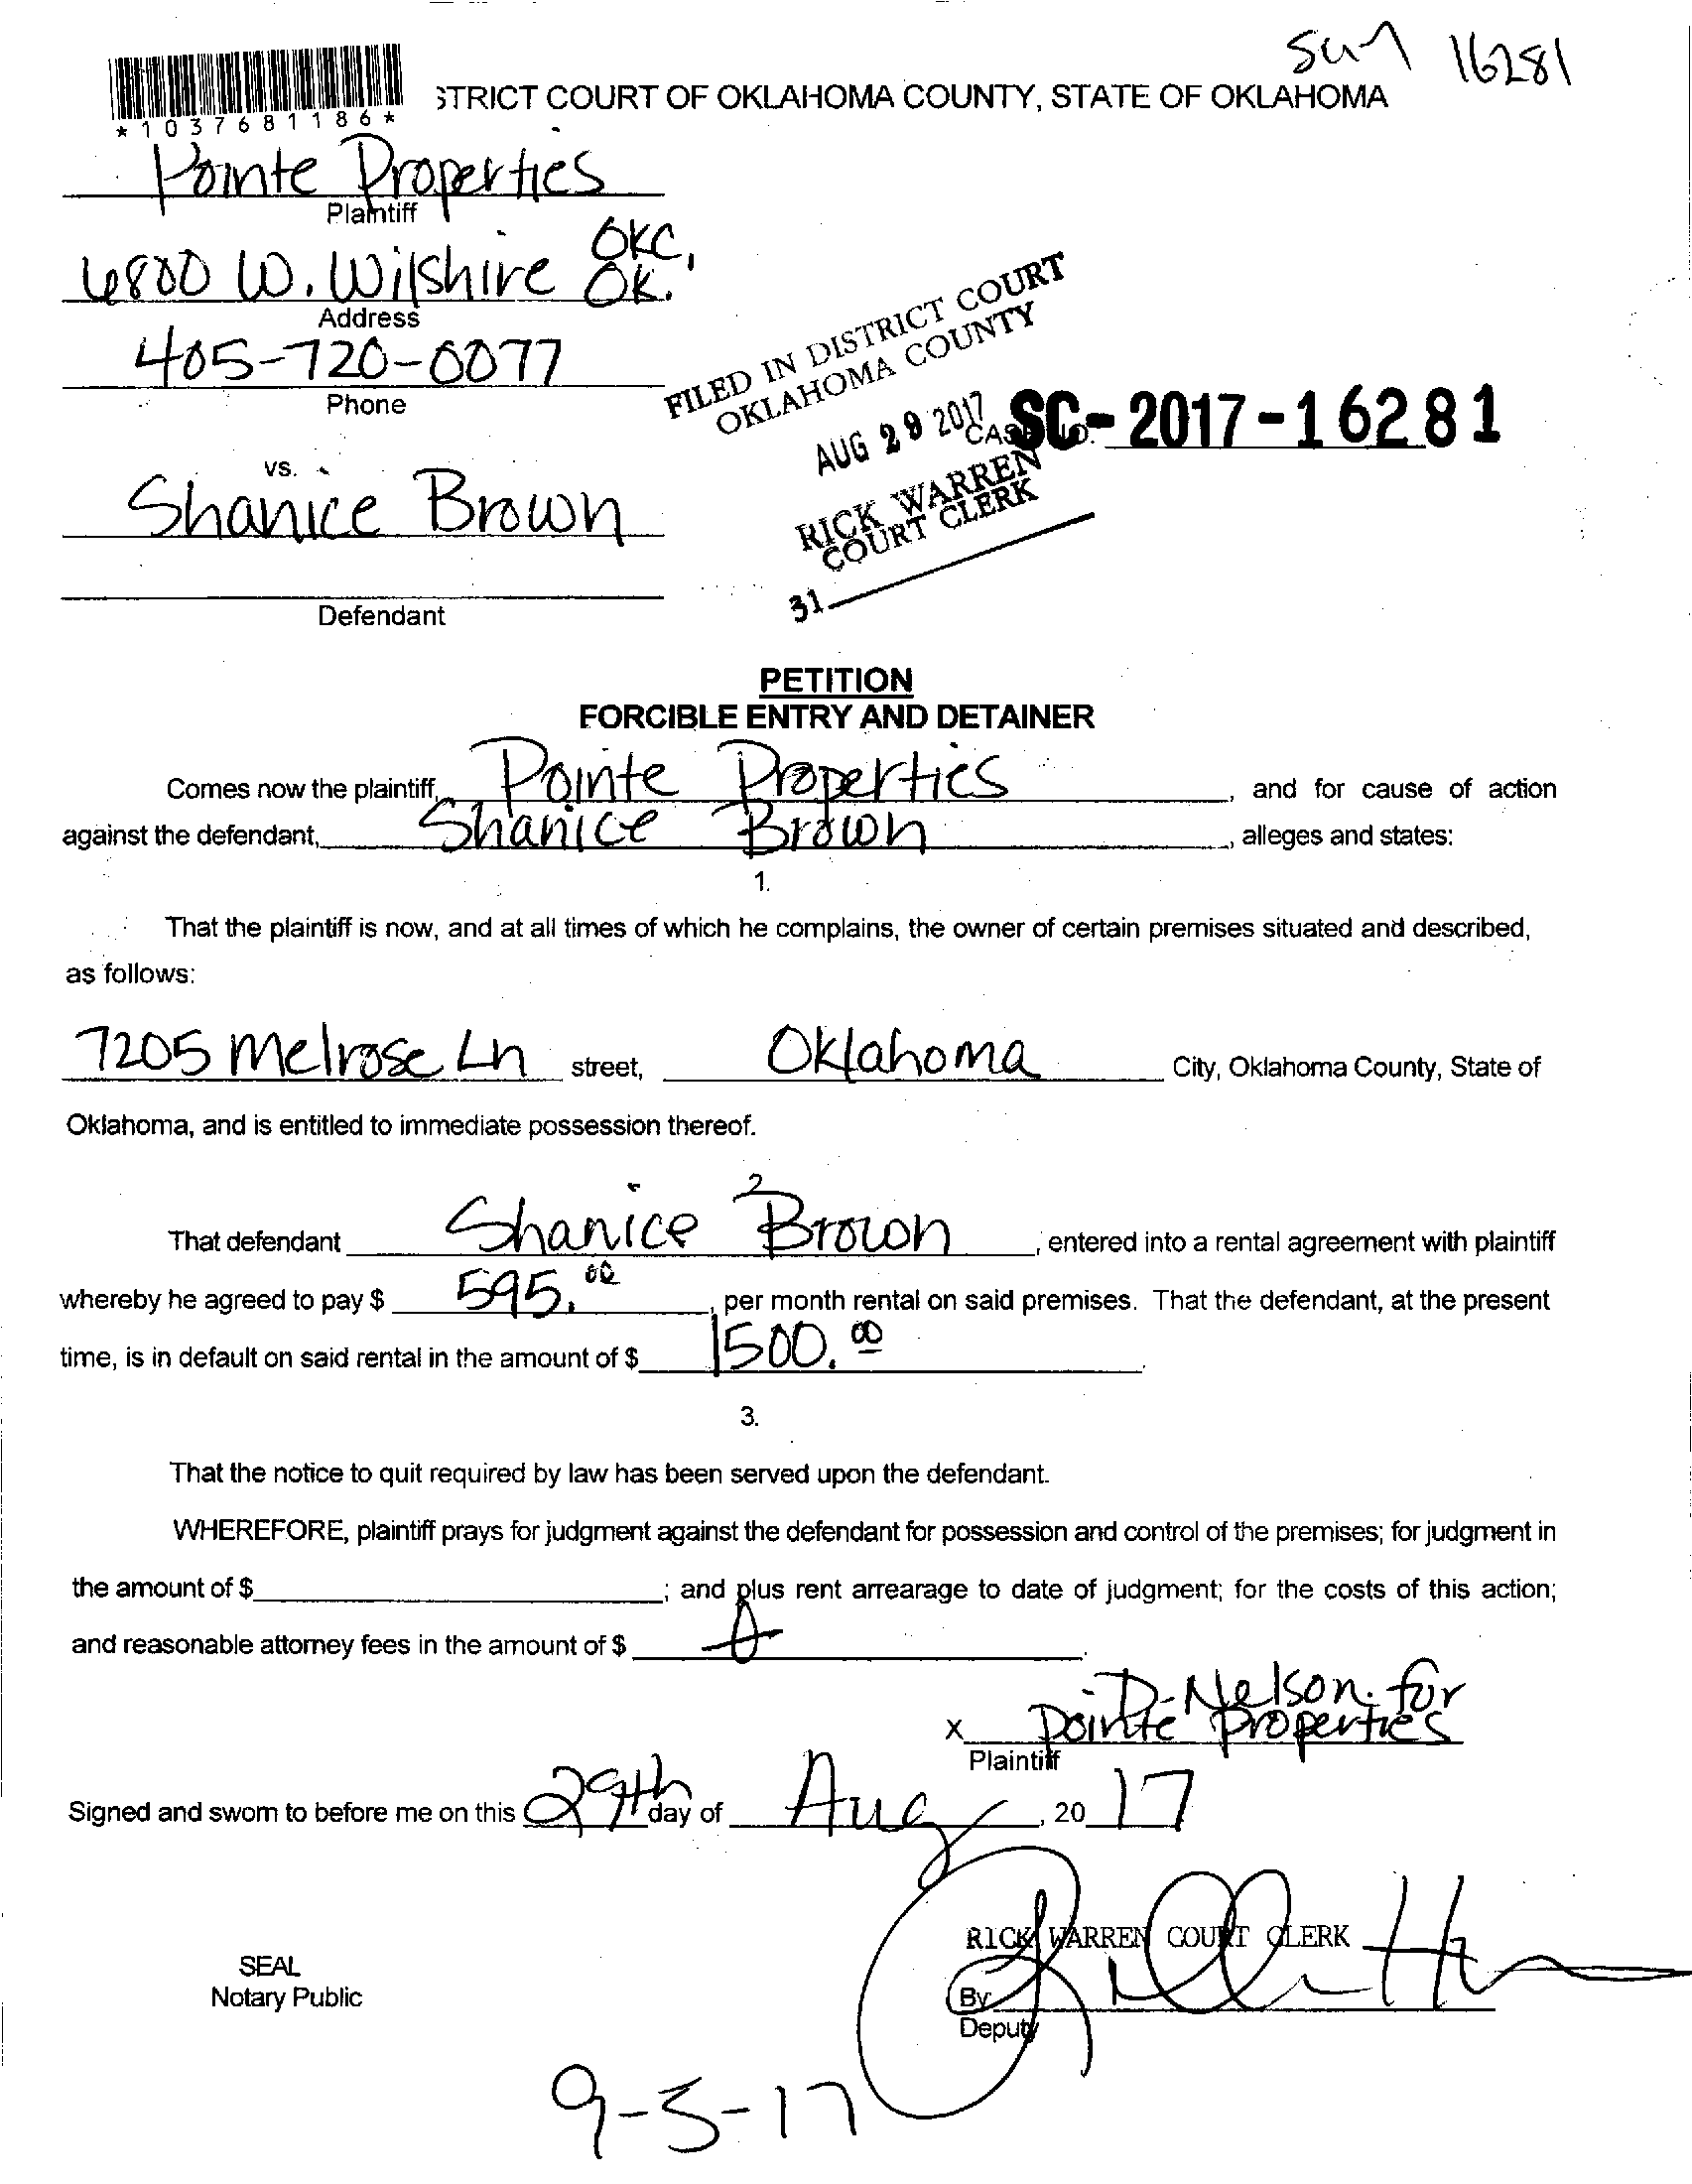 16281
STRICT COURT OF OKLAHOMA COUNTY, STATE OF OKLAHOMA
*1037681186*
Pointe Properties
Plaintiff
6800 W. Wilshire OKC, OK.
Address
405-720-0077
Phone
FILED IN DISTRICT COURT
OKLAHOMA COUNTY
AUG 29 2017
CASE NO. SC-2017-16281
RICK WARREN
COURT CLERK
31
vs.
Shanice Brown
Defendant
PETITION
FORCIBLE ENTRY AND DETAINER
Comes now the plaintiff, Pointe Properties, and for cause of action
against the defendant, Shanice Brown, alleges and states:
1.
That the plaintiff is now, and at all times of which he complains, the owner of certain premises situated and described,
as follows:
7205 Melrose Ln street, Oklahoma City, Oklahoma County, State of
Oklahoma, and is entitled to immediate possession thereof.
2
That defendant Shanice Brown, entered into a rental agreement with plaintiff
whereby he agreed to pay $ 595.00, per month rental on said premises. That the defendant, at the present
time, is in default on said rental in the amount of $ 1500.00.
3.
That the notice to quit required by law has been served upon the defendant.
WHEREFORE, plaintiff prays for judgment against the defendant for possession and control of the premises; for judgment in
the amount of $ ; and plus rent arrearage to date of judgment; for the costs of this action;
and reasonable attorney fees in the amount of $ 0.
D. Nelson for
X Pointe Properties
Plaintiff
Signed and sworn to before me on this 29th day of Aug, 20 17
RICK WARREN COURT CLERK
SEAL
Notary Public
By
Deputy
9-5-17